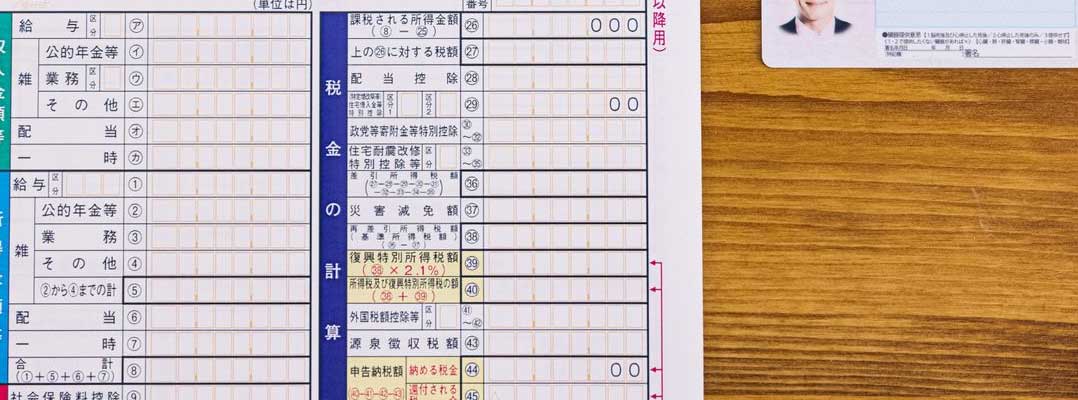 (単位は円)
番号
以降用)
給与 区分 ㋐
公的年金等 ㋑
雑 業務 区分 ㋒
その他 ㋓
配当 ㋔
一時 ㋕
給与 区分 ①
公的年金等 ②
雑 業務 ③
その他 ④
②から④までの計 ⑤
配当 ⑥
一時 ⑦
合計
(①+⑤+⑥+⑦) ⑧
社会保険料控除 ⑨
税金の計算
課税される所得金額
(⑧-㉕) ㉖ 000
上の㉖に対する税額 ㉗
配当控除 ㉘
区分1 区分2 ㉙ 00
政党等寄附金等特別控除 ㉚~㉜
住宅耐震改修
特別控除等 区分 ㉝~㉟
差引所得税額 ㊱
災害減免額 ㊲
再差引所得税額
(基準所得税額) ㊳
復興特別所得税額
(㊳×2.1%) ㊴
所得税及び復興特別所得税の額
(㊳+㊴) ㊵
外国税額控除等 区分 ㊶~㊷
源泉徴収税額 ㊸
申告納税額 納める税金 ㊹ 00
㊵-㊶-㊷-㊸ 還付される ㊺
署名